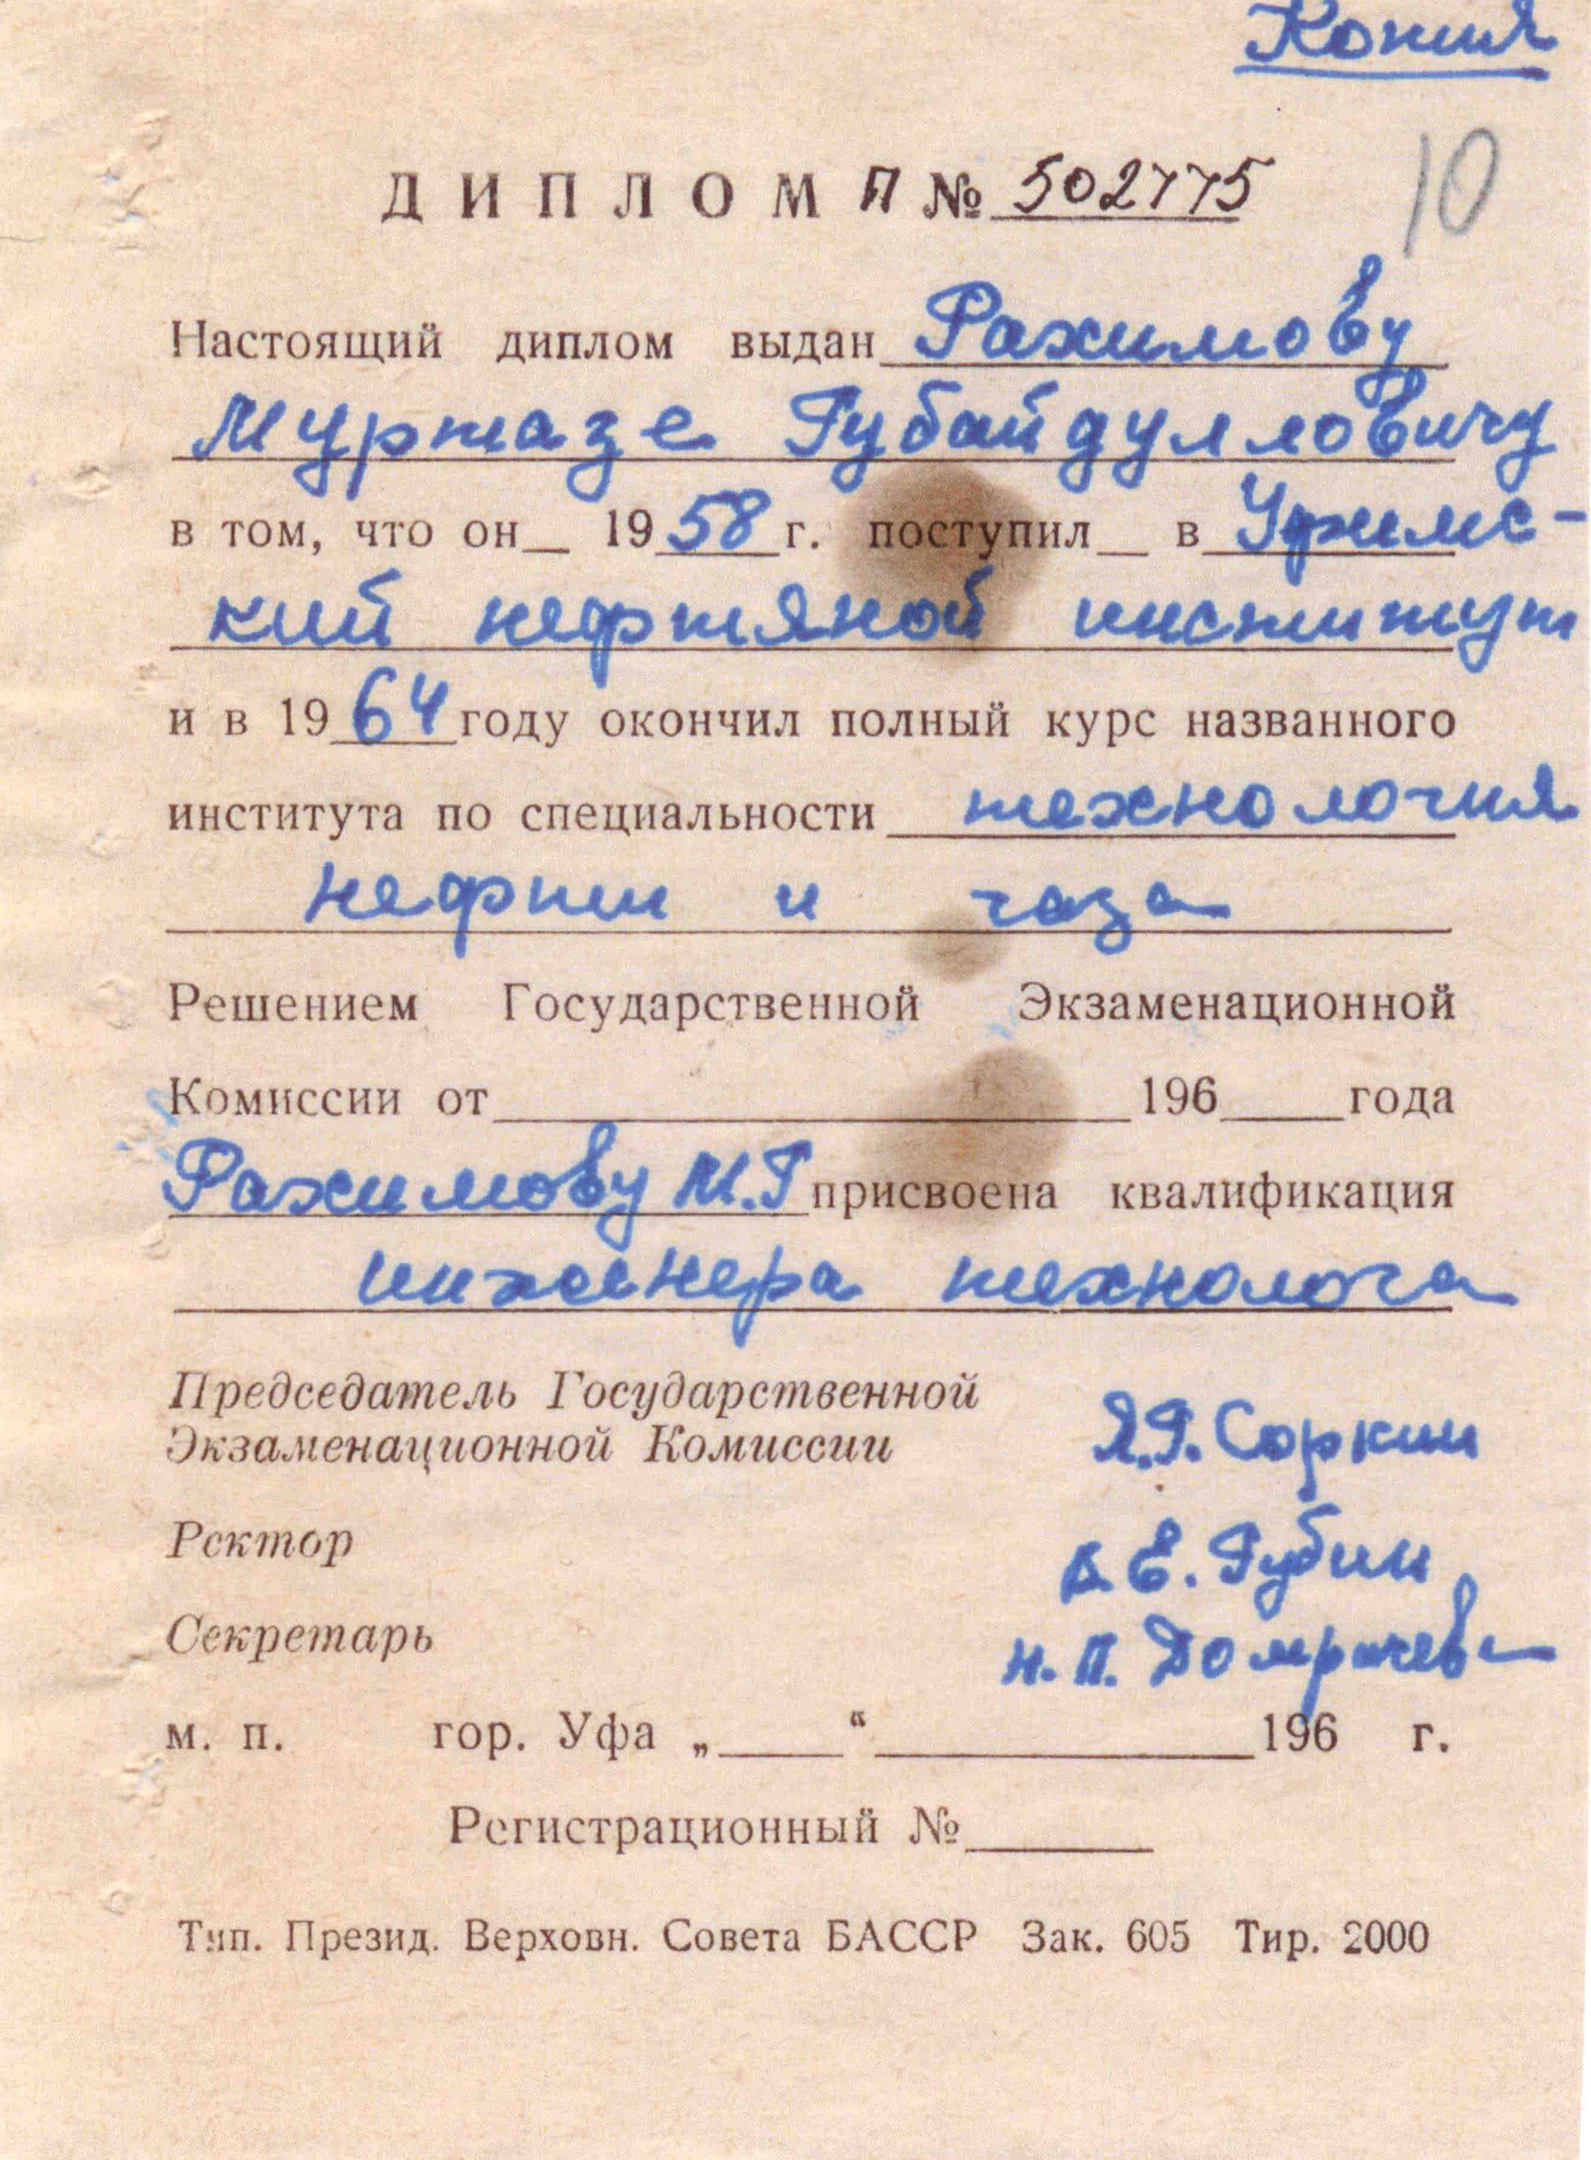 Копия
10
ДИПЛОМ П № 502775
Настоящий диплом выдан Рахимову
Муртазе Губайдулловичу
в том, что он_ 1958 г. поступил_ в Уфимс-
кий нефтяной институт
и в 1964 году окончил полный курс названного
института по специальности технология
нефти и газа
Решением Государственной Экзаменационной
Комиссии от____196__года
Рахимову М.Г присвоена квалификация
инженера технолога
Председатель Государственной
Экзаменационной Комиссии Я.Г. Соркин
Ректор В.Е. Губин
Секретарь Н.П. Домрачева
м. п. гор. Уфа „__“____196 г.
Регистрационный №____
Тип. Презид. Верховн. Совета БАССР Зак. 605 Тир. 2000